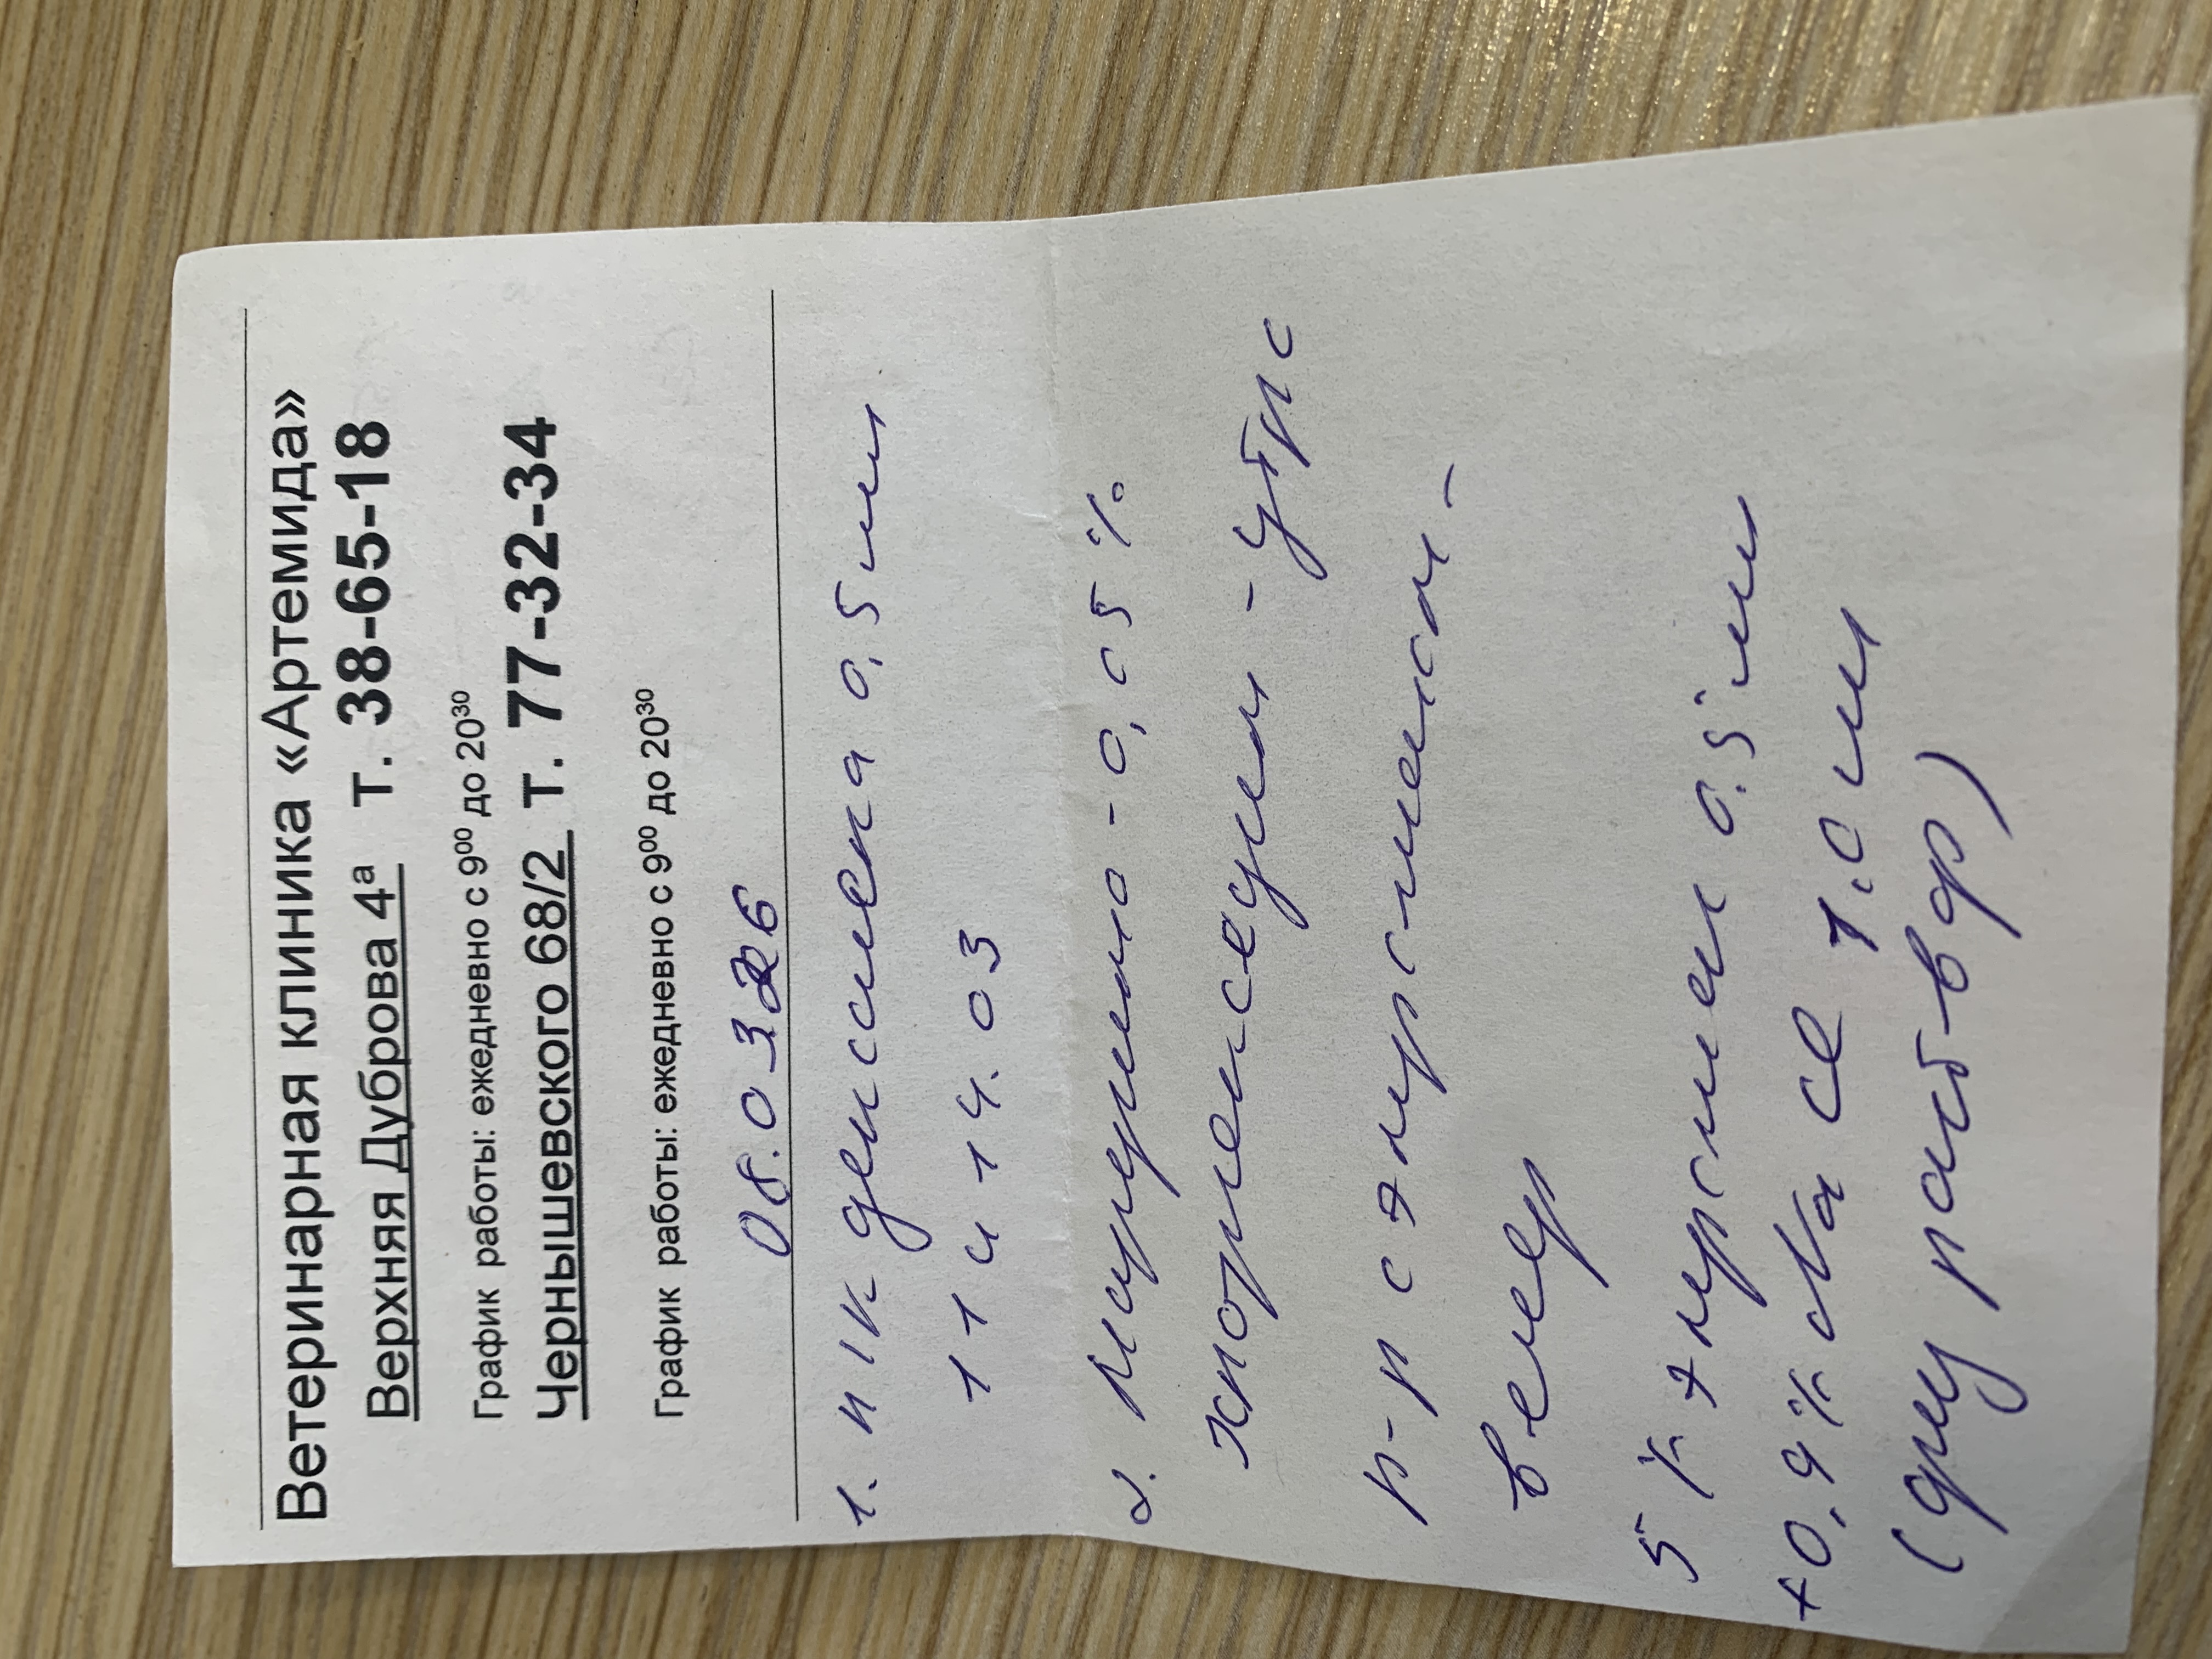 Ветеринарная клиника «Артемида»
Верхняя Дуброва 4ᵃ т. 38-65-18
График работы: ежедневно с 9⁰⁰ до 20³⁰
Чернышевского 68/2 т. 77-32-34
График работы: ежедневно с 9⁰⁰ до 20³⁰
08.03.26
1. п/к дексамена 0,5 мл
11 и 14.03
2. 0,05%
хлоргексидин - утро
р-р с
вечер
5% 0.5 мл
+0,9% Na Ce 1.0 мл
(раствор)